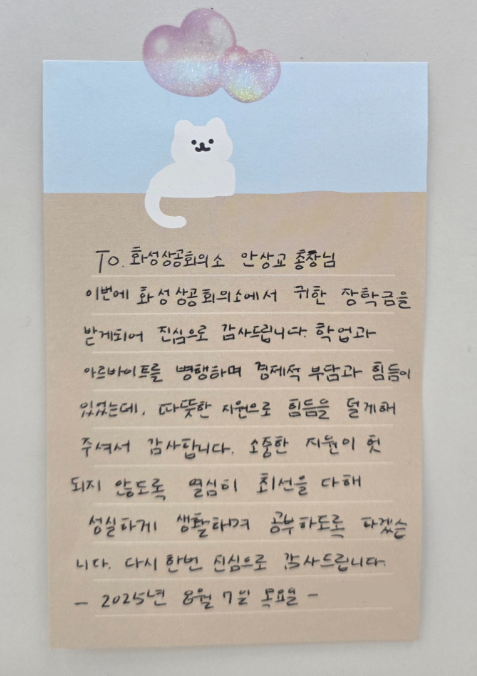 To. 화성상공회의소 안상교 총장님
이번에 화성상공회의소에서 귀한 장학금을
받게되어 진심으로 감사드립니다. 학업과
아르바이트를 병행하며 경제적 부담과 힘듦이
있었는데, 따뜻한 지원으로 힘듦을 덜게해
주셔서 감사합니다. 소중한 지원이 헛
되지 않도록 열심히 최선을 다해
성실하게 생활하며 공부하도록 하겠습
니다. 다시 한번 진심으로 감사드립니다.
- 2025년 8월 7일 목요일 -